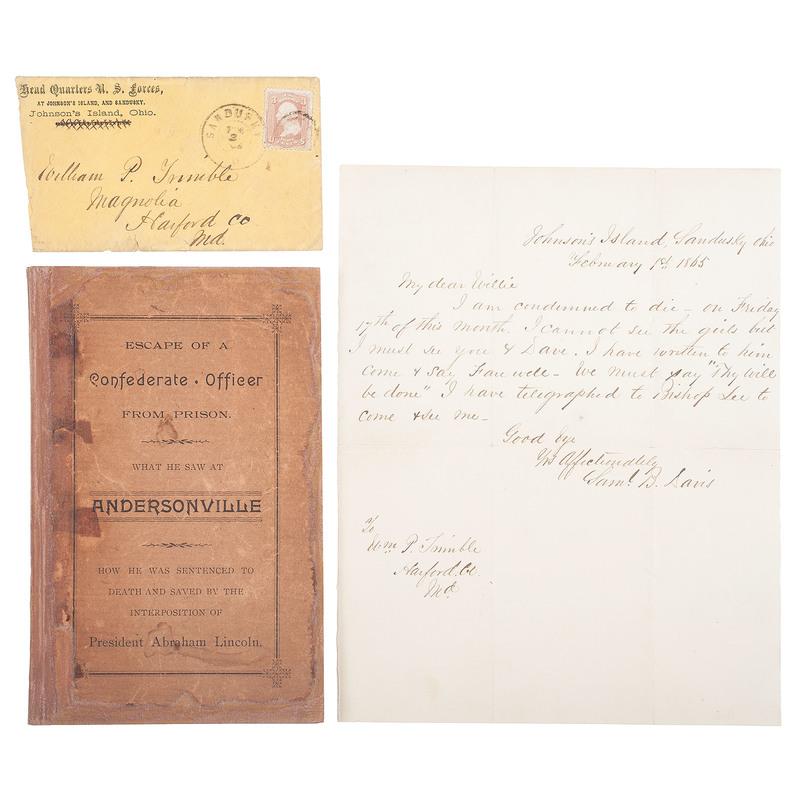 Head Quarters U. S. Forces,
AT JOHNSON'S ISLAND, AND SANDUSKY,
Johnson's Island, Ohio.
SANDUSKY
FEB
2
3
William P. Trimble
Magnolia
Harford Co
Md.
ESCAPE OF A
Confederate Officer
FROM PRISON.
WHAT HE SAW AT
ANDERSONVILLE
HOW HE WAS SENTENCED TO
DEATH AND SAVED BY THE
INTERPOSITION OF
President Abraham Lincoln.
Johnson's Island, Sandusky Ohio
February 1st 1865
My dear Willie
I am condemned to die - on Friday
17th of this month. I cannot see the girls but
I must see you & Dave. I have written to him
come & say Farewell - We must say "Thy will
be done" I have telegraphed to Bishop Lee to
come & see me -
Good bye
Yrs Affectionately
Saml. B. Davis
To
Wm P. Trimble
Harford, Co.
Md.